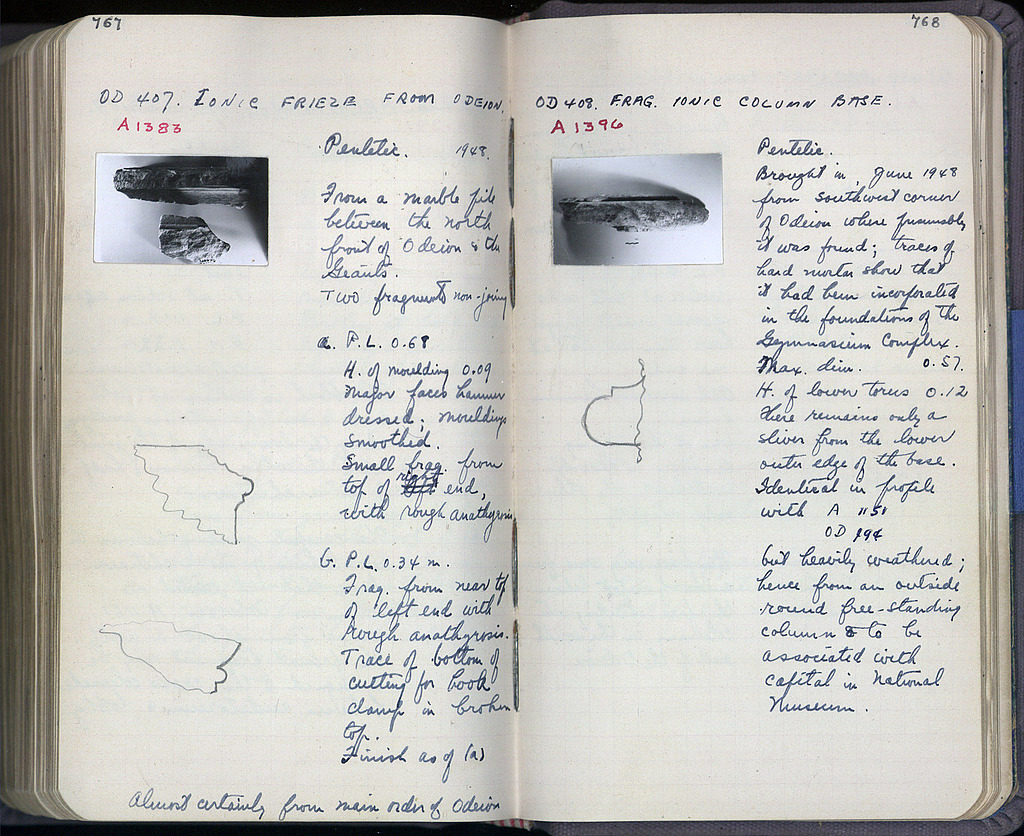 767
OD 407. IONIC FRIEZE FROM ODEION.
A 1383
Pentelic. 1948.
From a marble pile
between the north
front of Odeion & the
Giants.
Two fragments non-joining
a. P.L. 0.68
H. of moulding 0.09
Major faces hammer
dressed; mouldings
smoothed.
Small frag. from
right
top of left end,
with rough anathyrosis
b. P.L. 0.34 m.
Frag. from near top
of left end with
rough anathyrosis.
Trace of bottom of
cutting for hook
clamp in broken
top.
Finish as of (a)
Almost certainly from main order of Odeion
768
OD 408. FRAG. IONIC COLUMN BASE.
A 1396
Pentelic.
Brought in, June 1948
from southwest corner
of Odeion where presumably
it was found; traces of
hard mortar show that
it had been incorporated
in the foundations of the
Gymnasium Complex.
Max. dim. 0.57.
H. of lower torus 0.12
There remains only a
sliver from the lower
outer edge of the base.
Identical in profile
with A 1151
OD 194
but heavily weathered;
hence from an outside
round free-standing
column & to be
associated with
capital in National
Museum.